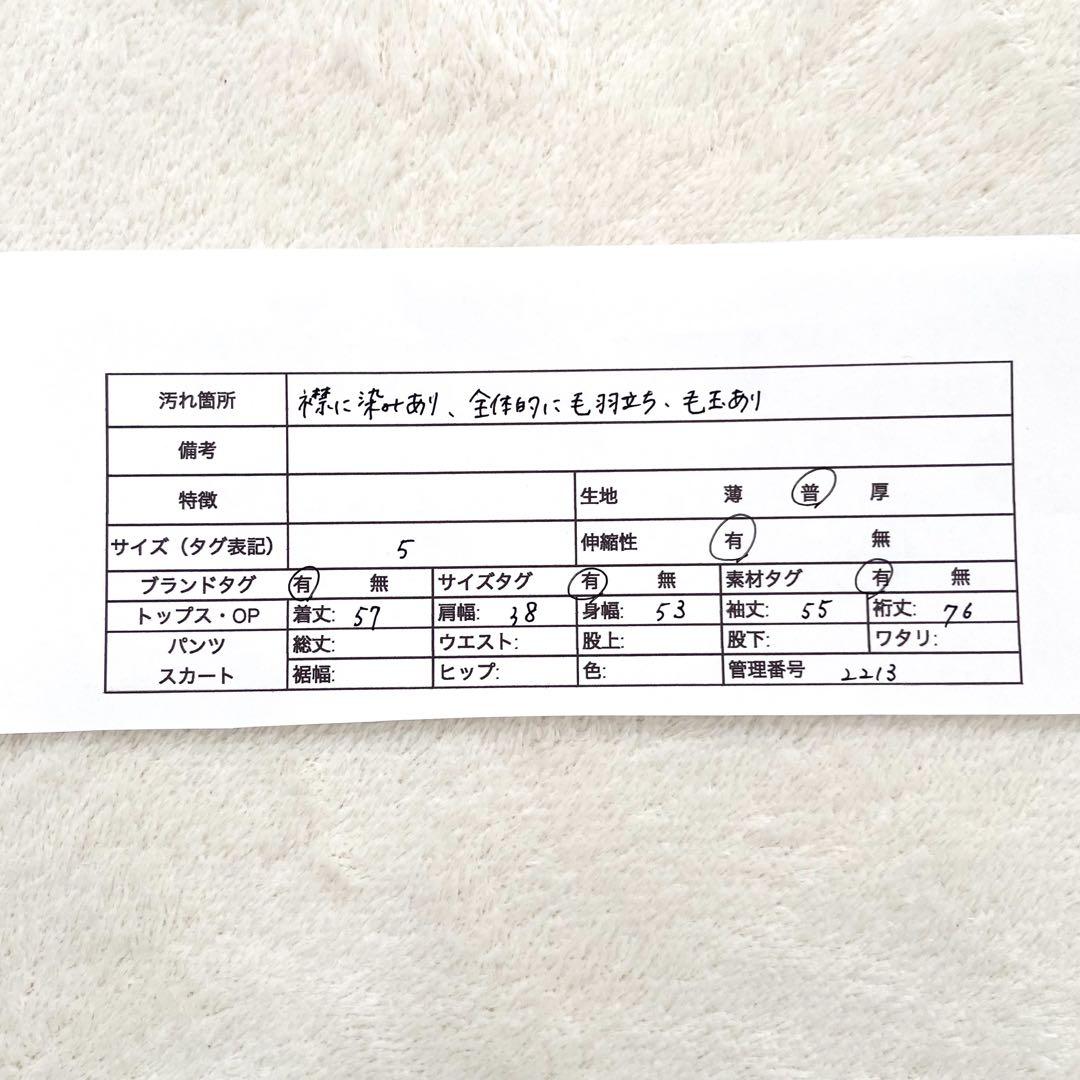 汚れ箇所 襟に染みあり、全体的に毛羽立ち、毛玉あり
備考
特徴 生地 薄 普 厚
サイズ（タグ表記） 5 伸縮性 有 無
ブランドタグ 有 無 サイズタグ 有 無 素材タグ 有 無
トップス・OP 着丈: 57 肩幅: 38 身幅: 53 袖丈: 55 裄丈: 76
パンツ 総丈: ウエスト: 股上: 股下: ワタリ:
スカート 裾幅: ヒップ: 色: 管理番号 2213